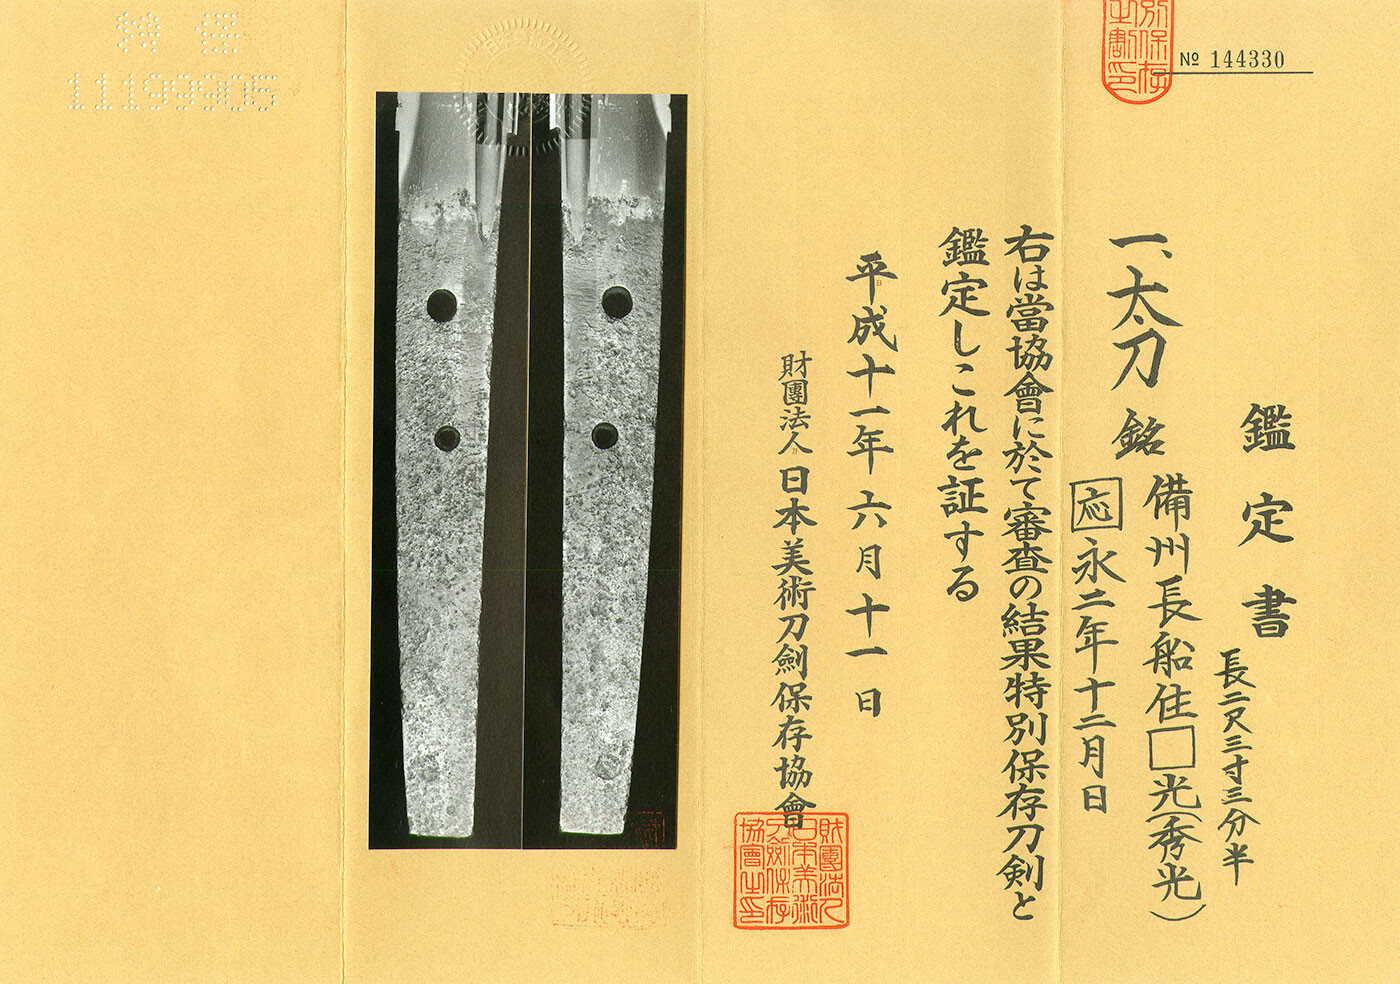 № 144330
鑑定書
一、太刀 銘 備州長船住□光(秀光)
応永二年十二月日
長二尺三寸三分半
右は當協會に於て審査の結果特別保存刀剣と
鑑定しこれを証する
平成十一年六月十一日
財團法人 日本美術刀劍保存協會
財團法人日本美術刀劍保存協會之印
11199905